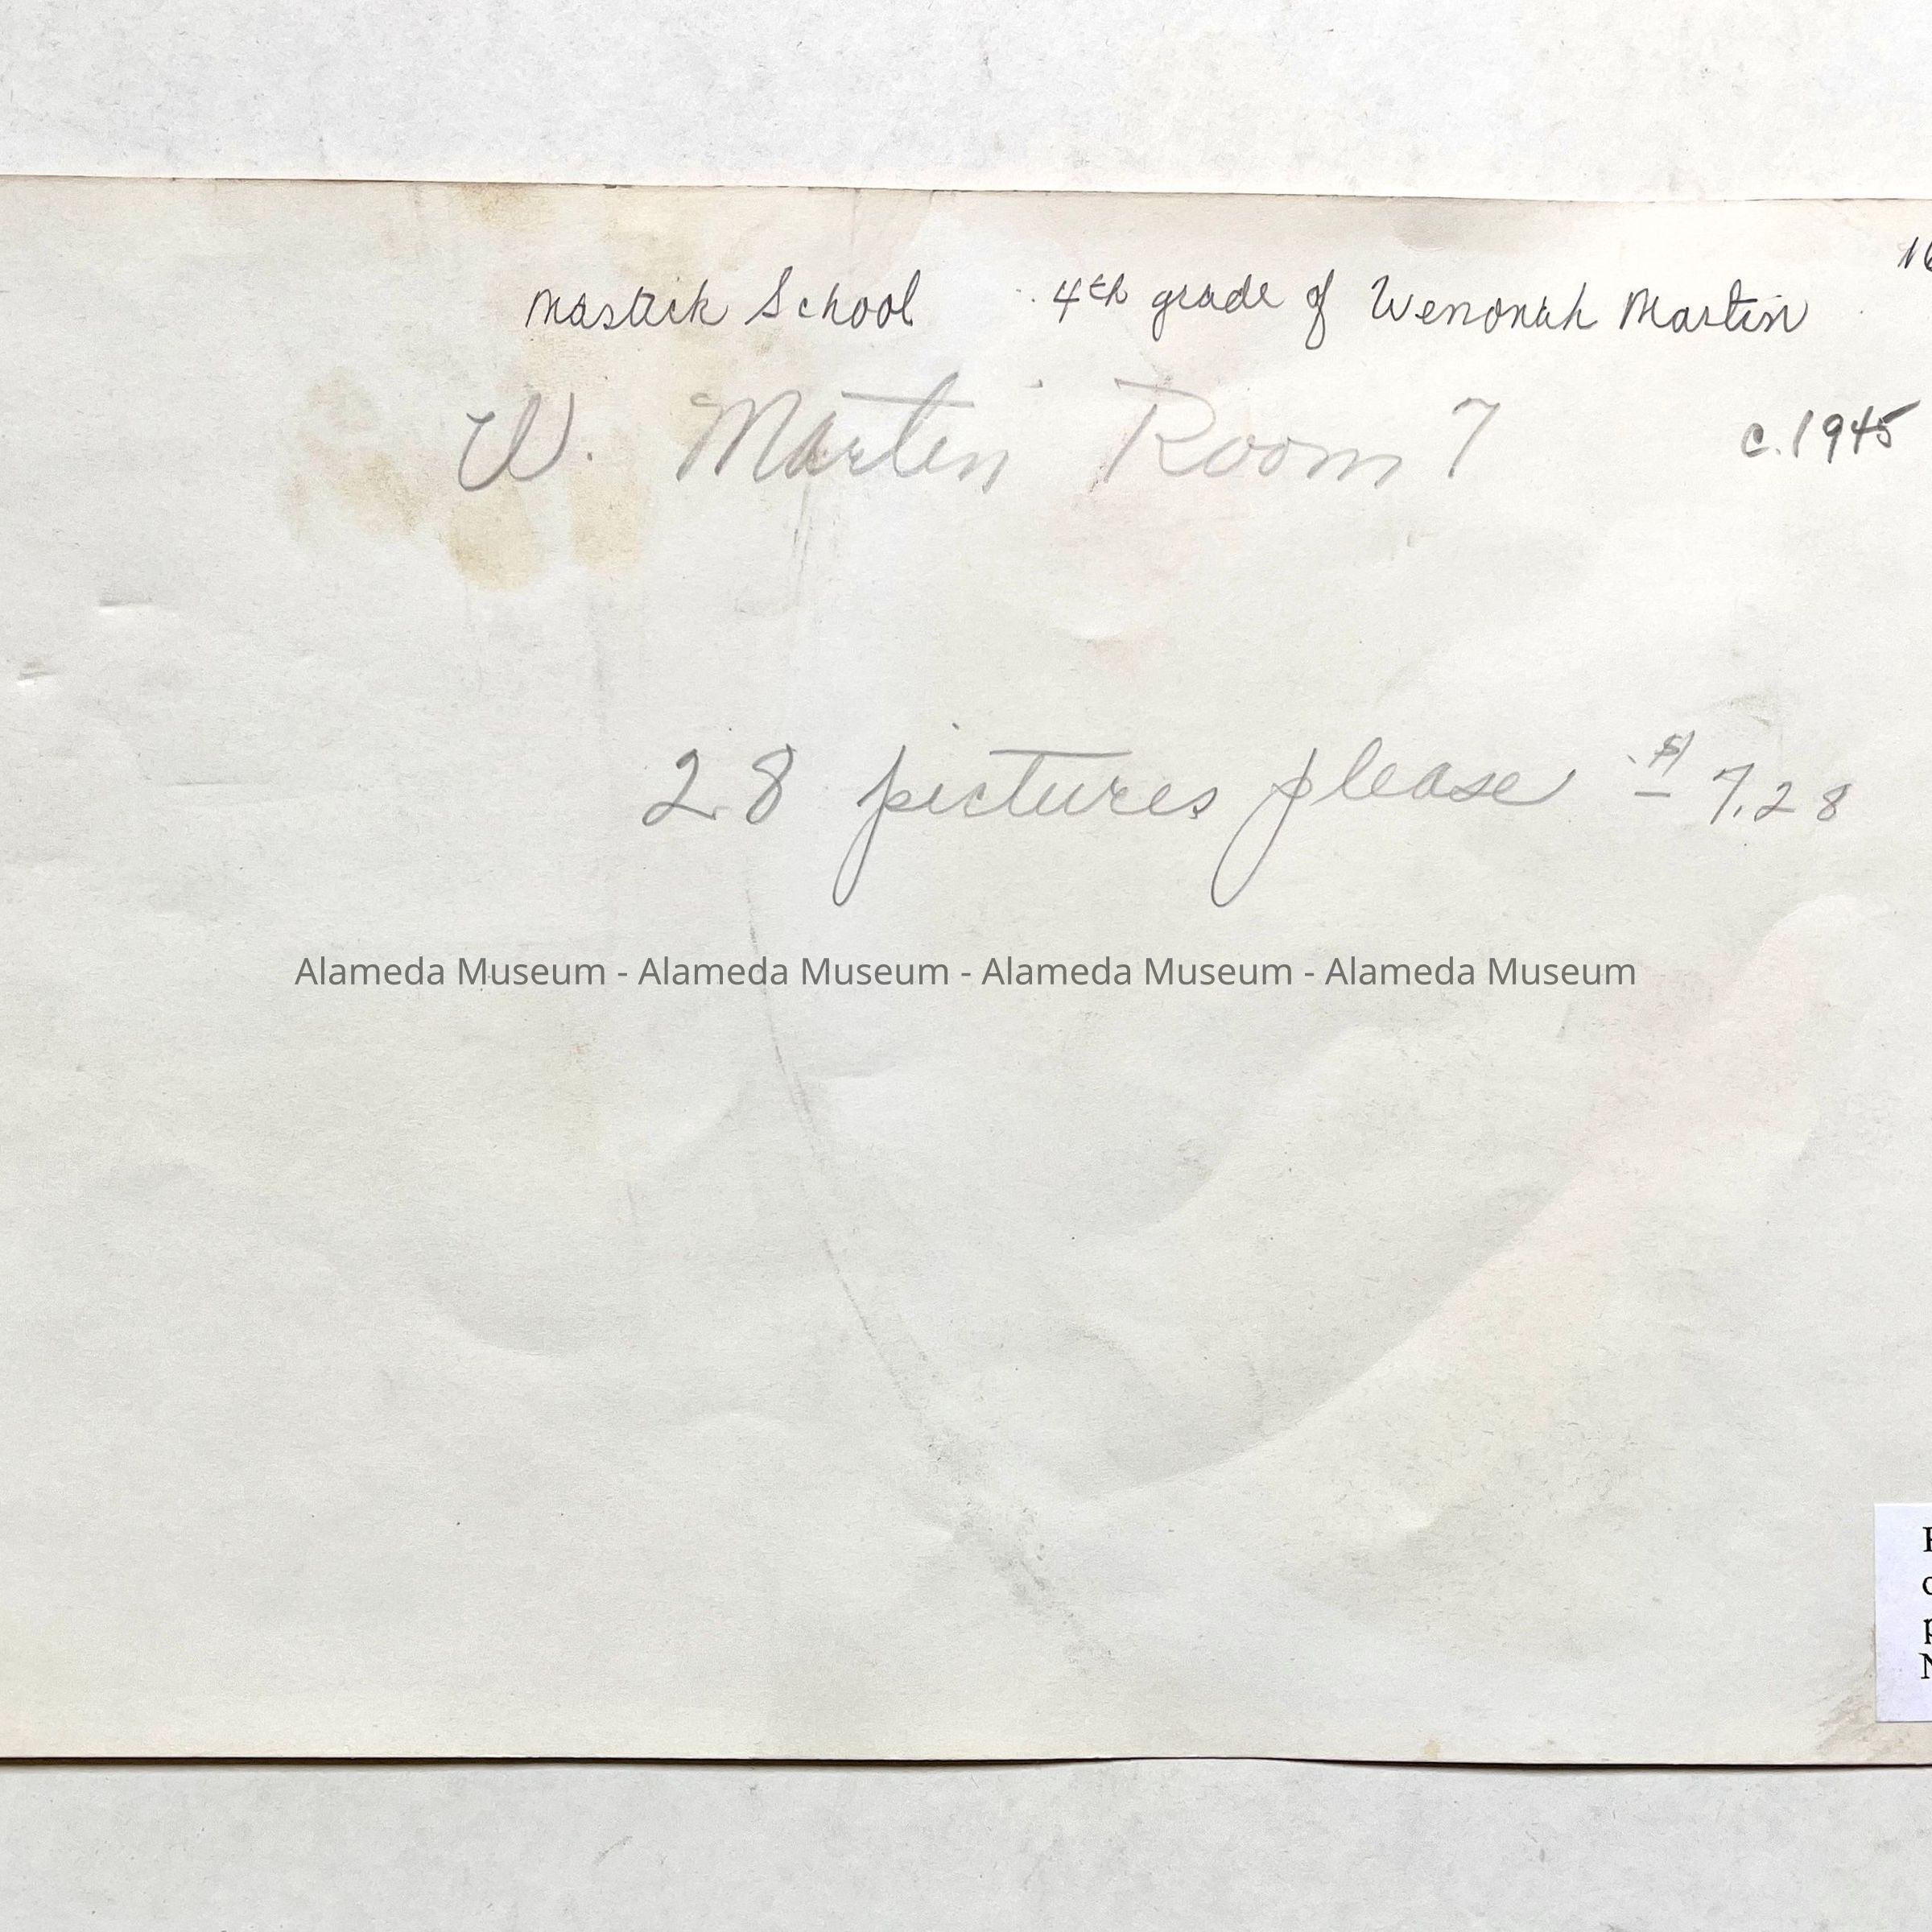 16
Mastick School 4th grade of Wenonah Martin
W. Martin Room 7
c. 1945
28 pictures please $7.28
Alameda Museum - Alameda Museum - Alameda Museum - Alameda Museum